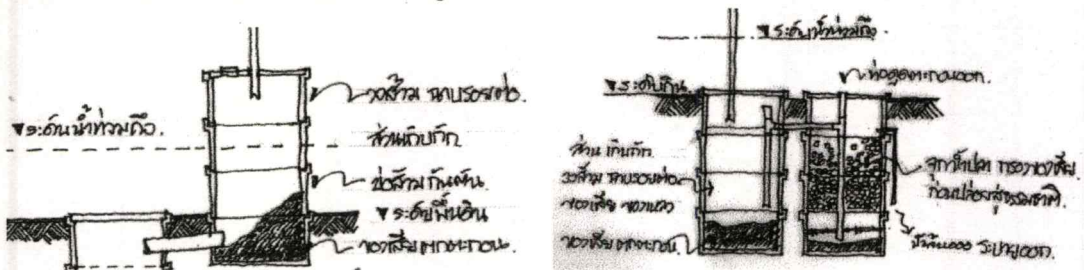 ▼ระดับน้ำท่วมถึง.
วงส้วม ฉาบรอยต่อ.
ส่วนเก็บกัก
บ่อส้วม กันซึม.
▼ระดับพื้นดิน
ของเสีย ตกตะกอน.
▼ระดับน้ำท่วมถึง.
▼ระดับดิน
ท่อดูดตะกอนออก.
ส่วน เก็บกัก
วงส้วม ฉาบรอยต่อ
ของเสีย ของเหลว
ของเสีย ตกตะกอน.
กรองของเสีย
ก่อนปล่อยสู่ธรรมชาติ.
ระบายออก.